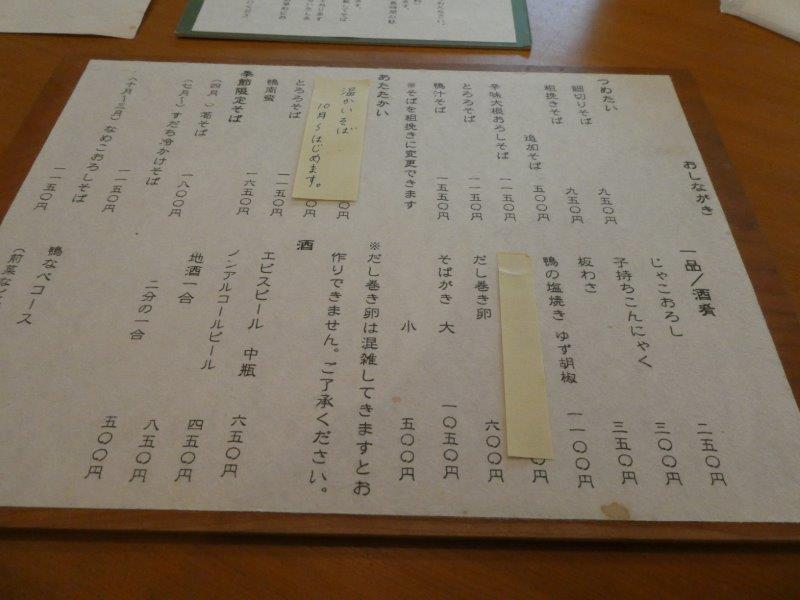 おしながき
つめたい
細切りそば 九五〇円
粗挽きそば 九五〇円
追加そば 五〇〇円
辛味大根おろしそば 一一五〇円
とろろそば 一一五〇円
鴨汁そば 一五五〇円
※そばを粗挽きに変更できます
あたたかい
〇円
温かいそば
10月〜はじめます。
〇円
とろろそば 一一五〇円
鴨南蛮 一六五〇円
季節限定そば
(四月〜) そば 〇〇円
(七月〜) すだち冷かけそば 一一五〇円
(十月〜三月) なめこおろしそば 一一五〇円
一品/酒肴
じゃこおろし 二五〇円
子持ちこんにゃく 三〇〇円
板わさ 三五〇円
鴨の塩焼き ゆず胡椒 一一〇〇円
〇円
だし巻き卵 六〇〇円
そばがき 大 一〇五〇円
小 五〇〇円
※だし巻き卵は混雑してきますとお
作りできません。ご了承ください。
酒
エビスビール 中瓶 六五〇円
ノンアルコールビール 四五〇円
地酒一合 八五〇円
二分の一合 五〇〇円
鴨なべコース
(前菜など